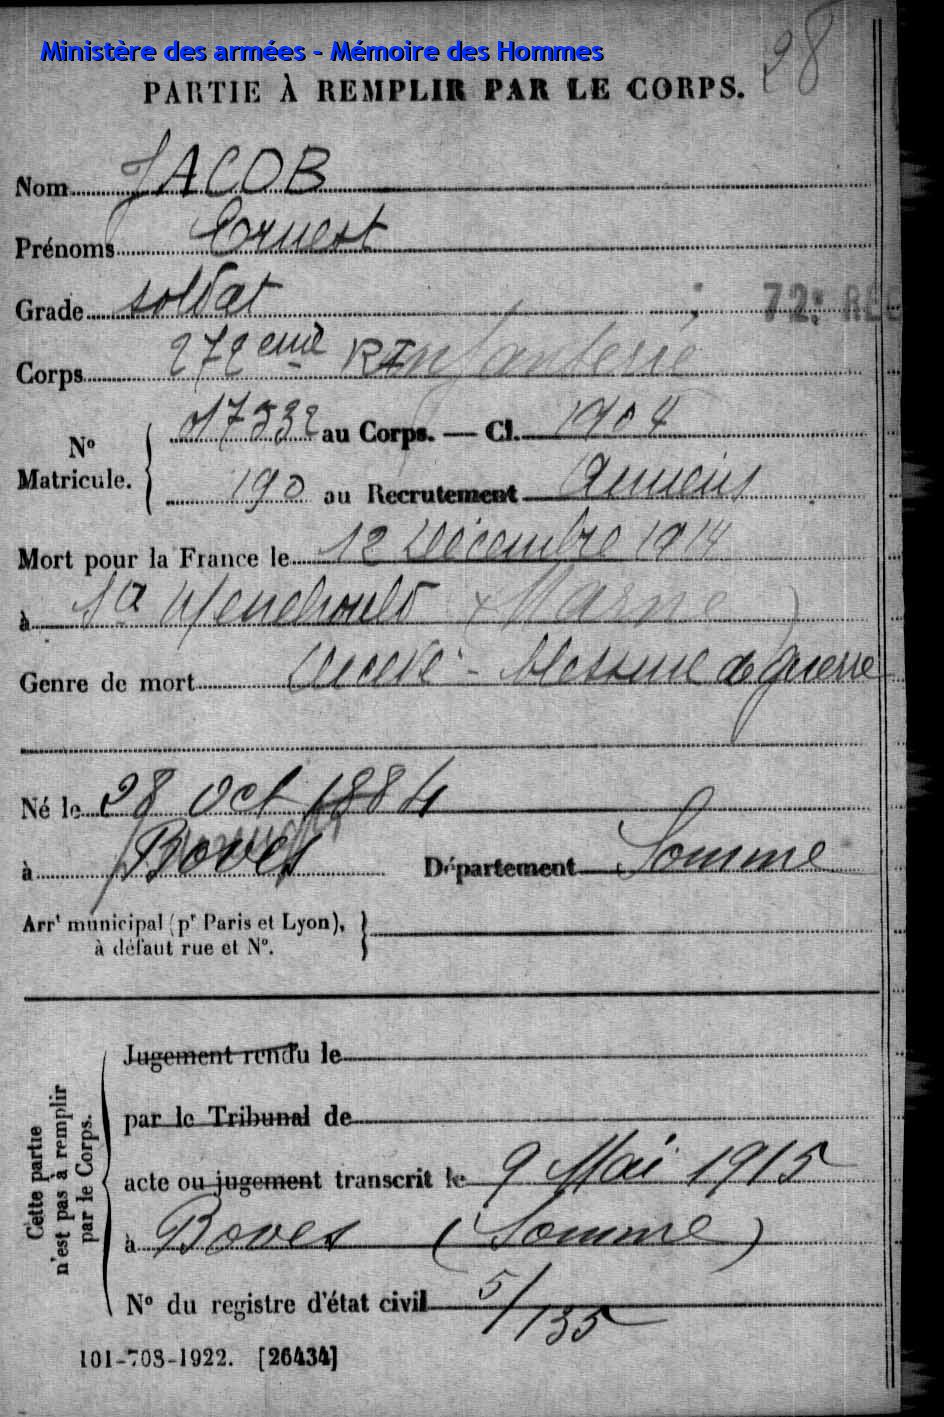 Ministère des armées - Mémoire des Hommes
28
PARTIE À REMPLIR PAR LE CORPS.
Nom JACOB
Prénoms Ernest
Grade soldat
72e RÉG
Corps 272eme RInfanterie
No Matricule. 17332 au Corps. — Cl. 1904
190 au Recrutement Amiens
Mort pour la France le 12 Décembre 1914
à Ste Menehould (Marne)
Genre de mort blessure de guerre
Né le 28 Oct 1884
à Boves Département Somme
Arrt municipal (pr Paris et Lyon),
à défaut rue et No.
Cette partie
n'est pas à remplir
par le Corps.
Jugement rendu le
par le Tribunal de
acte ou jugement transcrit le 9 Mai 1915
à Boves (Somme)
No du registre d'état civil 5/135
101-708-1922. [26434]